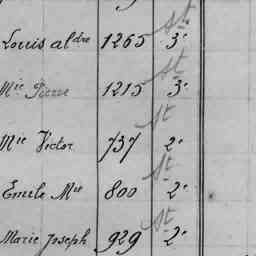 Louis aldre 1265 3e
St
Mie Pierre 1215 3e
St
Mie Victor 737 2e
St
Emile Mie 800 2e
St
Marie Joseph 929 2e
St